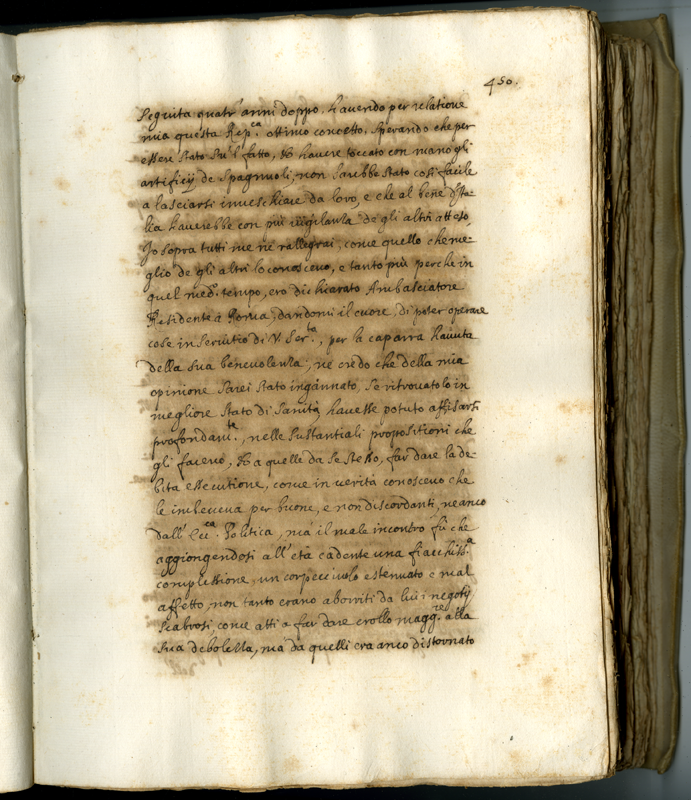 450.
seguita quatr'anni doppo, havendo per relatione
mia questa Rep.ca ottimo concetto, sperando che per
essere stato su'l fatto, et havere toccato con mano gli
artificij de Spagnuoli, non sarebbe stato cosi facile
a lasciarsi inveschiare da loro, e che al bene d'Ita-
lia haverebbe con più vigilanza de gli altri atteso,
Io sopra tutti me ne rallegrai, come quello che me-
glio de gli altri lo conoscevo, e tanto più perche in
quel med.o tempo, ero dichiarato Ambasciatore
Residente à Roma, dandomi il cuore, di poter operare
cose in servitio di V. Ser.ta, per la caparra havuta
della sua benevolenza, ne credo che della mia
opinione sarei stato ingannato, se ritrovatolo in
megliore stato di sanità, havesse potuto affisarsi
profondam.te, nelle sustantiali propositioni che
gli facevo, et a quelle da se stesso, far dare la de-
bita essecutione, come in verità conoscevo che
le imbeveva per buone, e non discordanti, ne anco
dall' Ecc.ca Politica, mà il male incontro fù che
aggiongendosi all'età cadente una fiacchiss.a
complessione, un corpicciuolo estenuato e mal
affetto, non tanto erano aborriti da lui i negotij
scabrosi, come atti a far dare crollo magg.re alla
sua debolezza, mà da quelli era anco distornato